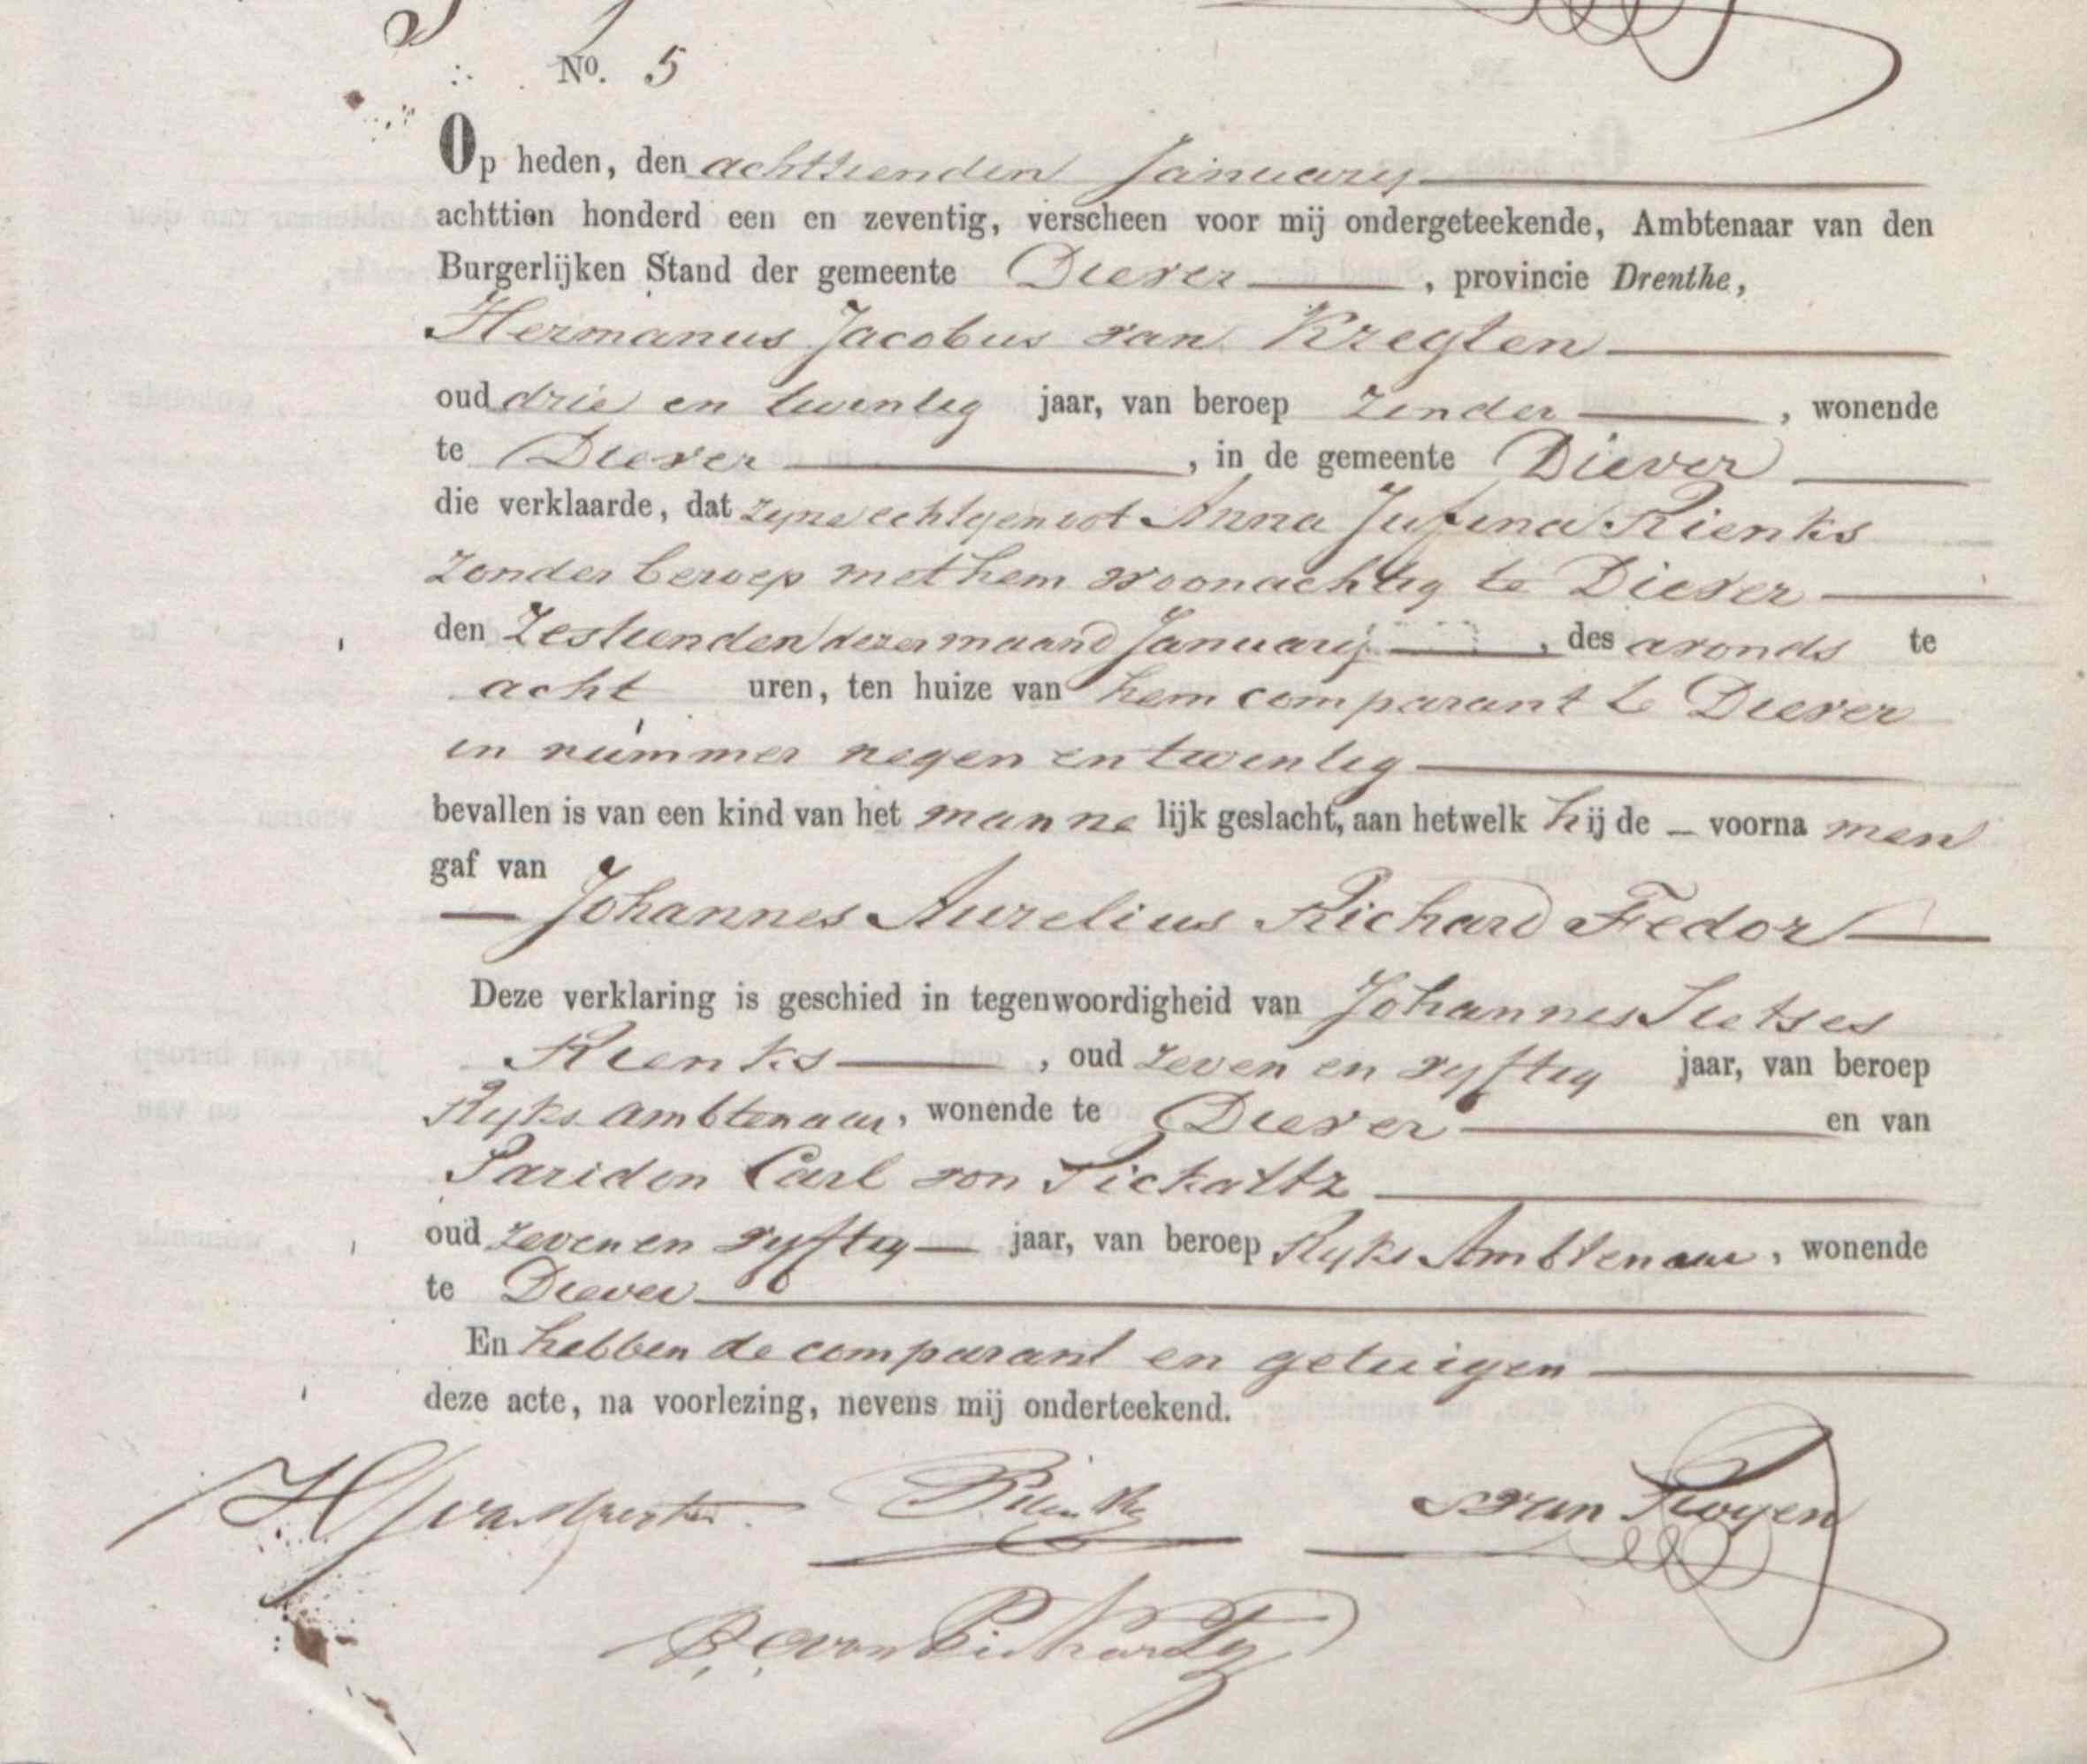 No. 5
Op heden, den achttienden Januarij
achttien honderd een en zeventig, verscheen voor mij ondergeteekende, Ambtenaar van den
Burgerlijken Stand der gemeente Diever, provincie Drenthe,
Hermanus Jacobus van Kregten
oud drie en twintig jaar, van beroep zonder, wonende
te Diever, in de gemeente Diever
die verklaarde, dat zijne echtgenoot Anna Jufina Rienks
zonder beroep met hem woonachtig te Diever
den zestienden dezer maand Januarij, des avonds te
acht uren, ten huize van hem comparant te Diever
in nummer negen en twintig
bevallen is van een kind van het mannelijk geslacht, aan hetwelk hij de voornamen
gaf van
Johannes Aurelius Richard Fedor
Deze verklaring is geschied in tegenwoordigheid van Johannes Sietses
Rienks, oud zeven en vyftig jaar, van beroep
Ryks ambtenaar, wonende te Diever en van
Pariden Carl von
oud zeven en vyftig jaar, van beroep Ryks Ambtenaar, wonende
te Diever
En hebben de comparant en getuigen
deze acte, na voorlezing, nevens mij onderteekend.
Rienks van Royen